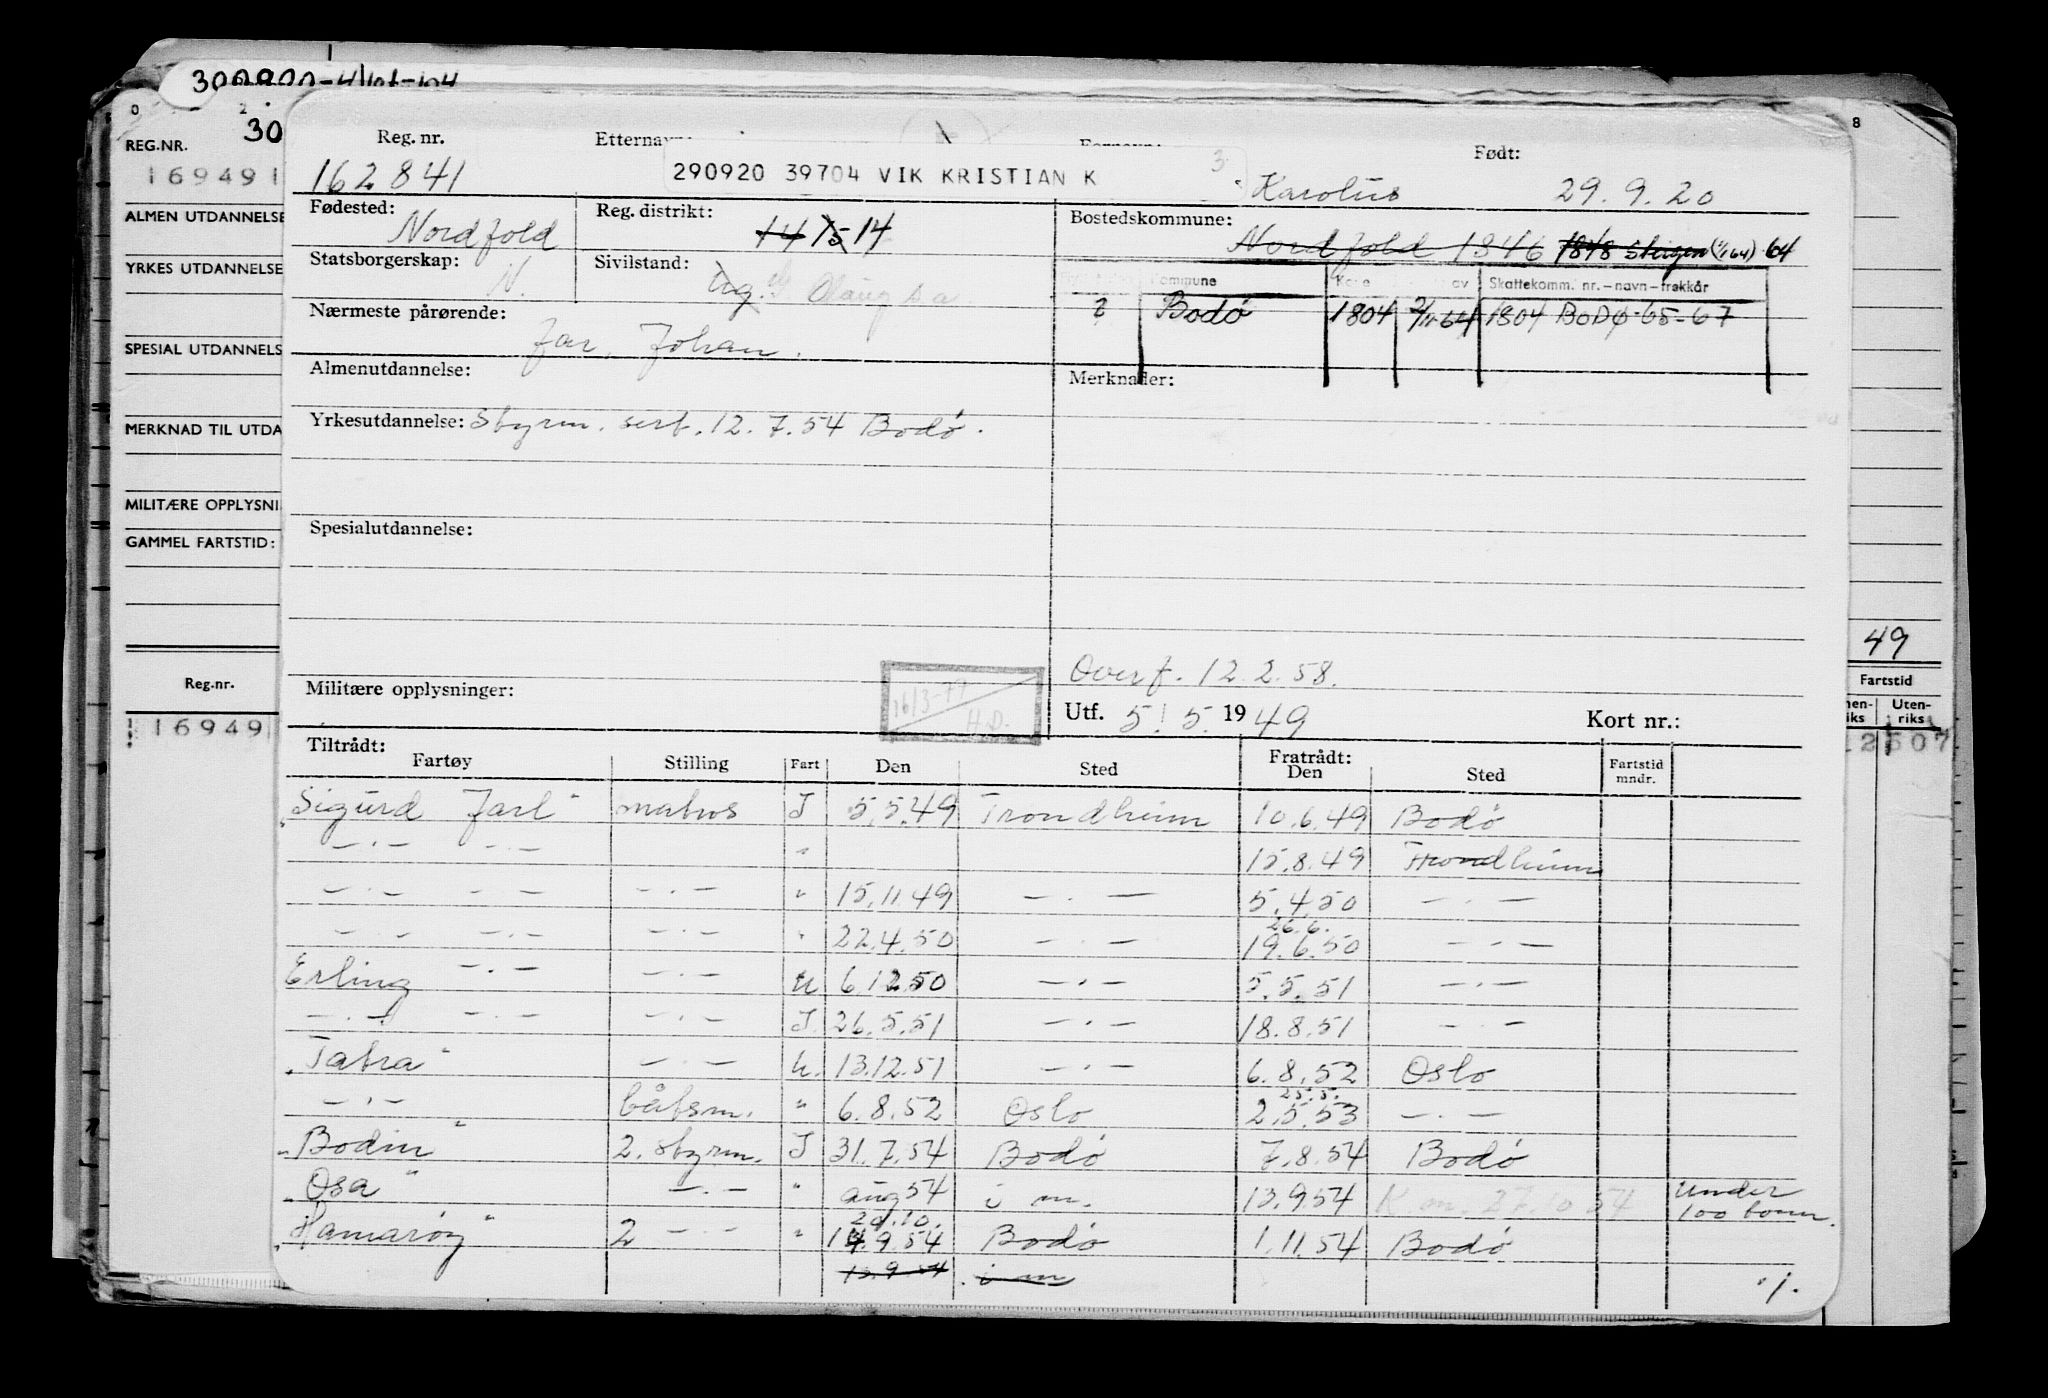 300900-4
0 2 8
REG.NR. 30
169491
ALMEN UTDANNELSE
YRKES UTDANNELSE
SPESIAL UTDANNELS
MERKNAD TIL UTDA
MILITÆRE OPPLYSNI
GAMMEL FARTSTID:
Reg.nr.
16949
49
Fartstid
nen- Uten-
iks riks
12507
Reg. nr. Etternavn: Fornavn: Født:
162841 290920 39704 VIK KRISTIAN K 3 Karolus 29.9.20
Fødested: Nordfold Reg. distrikt: 14 15 14 Bostedskommune: Nordfold 1846 1848 Steigen (1/1 64) 64
Statsborgerskap: N. Sivilstand: ug. G
Kommune Skattekomm. nr.–navn–frakkår
2 Bodø 1804 64 1804 BODØ-65-67
Nærmeste pårørende: far, Johan.
Almenutdannelse: Merknader:
Yrkesutdannelse: Styrm. sert. 12.7.54 Bodø.
Spesialutdannelse:
Overf. 12.2.58.
Militære opplysninger: 16/3-79 H.D. Utf. 5/5 1949 Kort nr.:
Tiltrådt: Fratrådt:
Fartøy Stilling Fart Den Sted Den Sted Fartstid mndr.
"Sigurd Jarl" matros I 5.5.49 Trondheim 10.6.49 Bodø
— · — — · — " 15.8.49 Trondheim
— · — — · — — · — " 15.11.49 — · — 5.4.50 — · —
26.6.
— · — — · — — · — " 22.4.50 — · — 19.6.50 — · —
Erling — · — — · — U 6.12.50 — · — 5.5.51 — · —
— · — — · — — · — I. 26.5.51 — · — 18.8.51 — · —
"Tatra" — · — U. 13.12.51 — · — 6.8.52 Oslo
25.5.
— · — båtsm. " 6.8.52 Oslo 2.5.53 — · —
"Bodin" 2. styrm. I 31.7.54 Bodø 7.8.54 Bodø
"Osa" — · — " aug 54 i m. 13.9.54 K.m. 27.10.54 under 100 tonn.
20.10.
"Hamarøy" 2 — · — " 14.9.54 Bodø 1.11.54 Bodø
13.9.54 i m
·/.